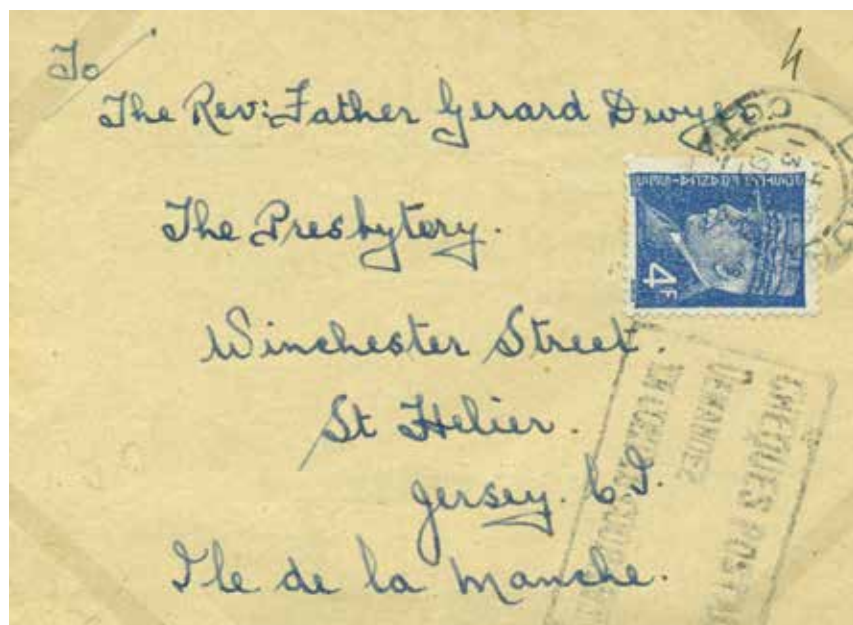 To
The Rev: Father Gerard Dwyer.
4
The Presbytery.
4F
Winchester Street.
St Helier.
Jersey. C.I.
Ile de la Manche.
CHEQUES POSTAUX
DEMANDEZ